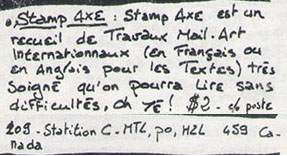 • Stamp AXE : Stamp AXE est un
recueil de Travaux Mail-Art
Internationaux (en Français ou
en Anglais pour les Textes) très
Soigné qu'on pourra Lire sans
difficultés, Oh YÉ ! $2 - poste
209 - Statition C - MTL, po, H2L 4S9 Ca-
nada